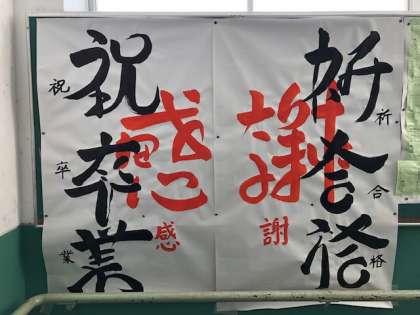 祈合格
祈合格
感謝
感謝
祝卒業
祝卒業